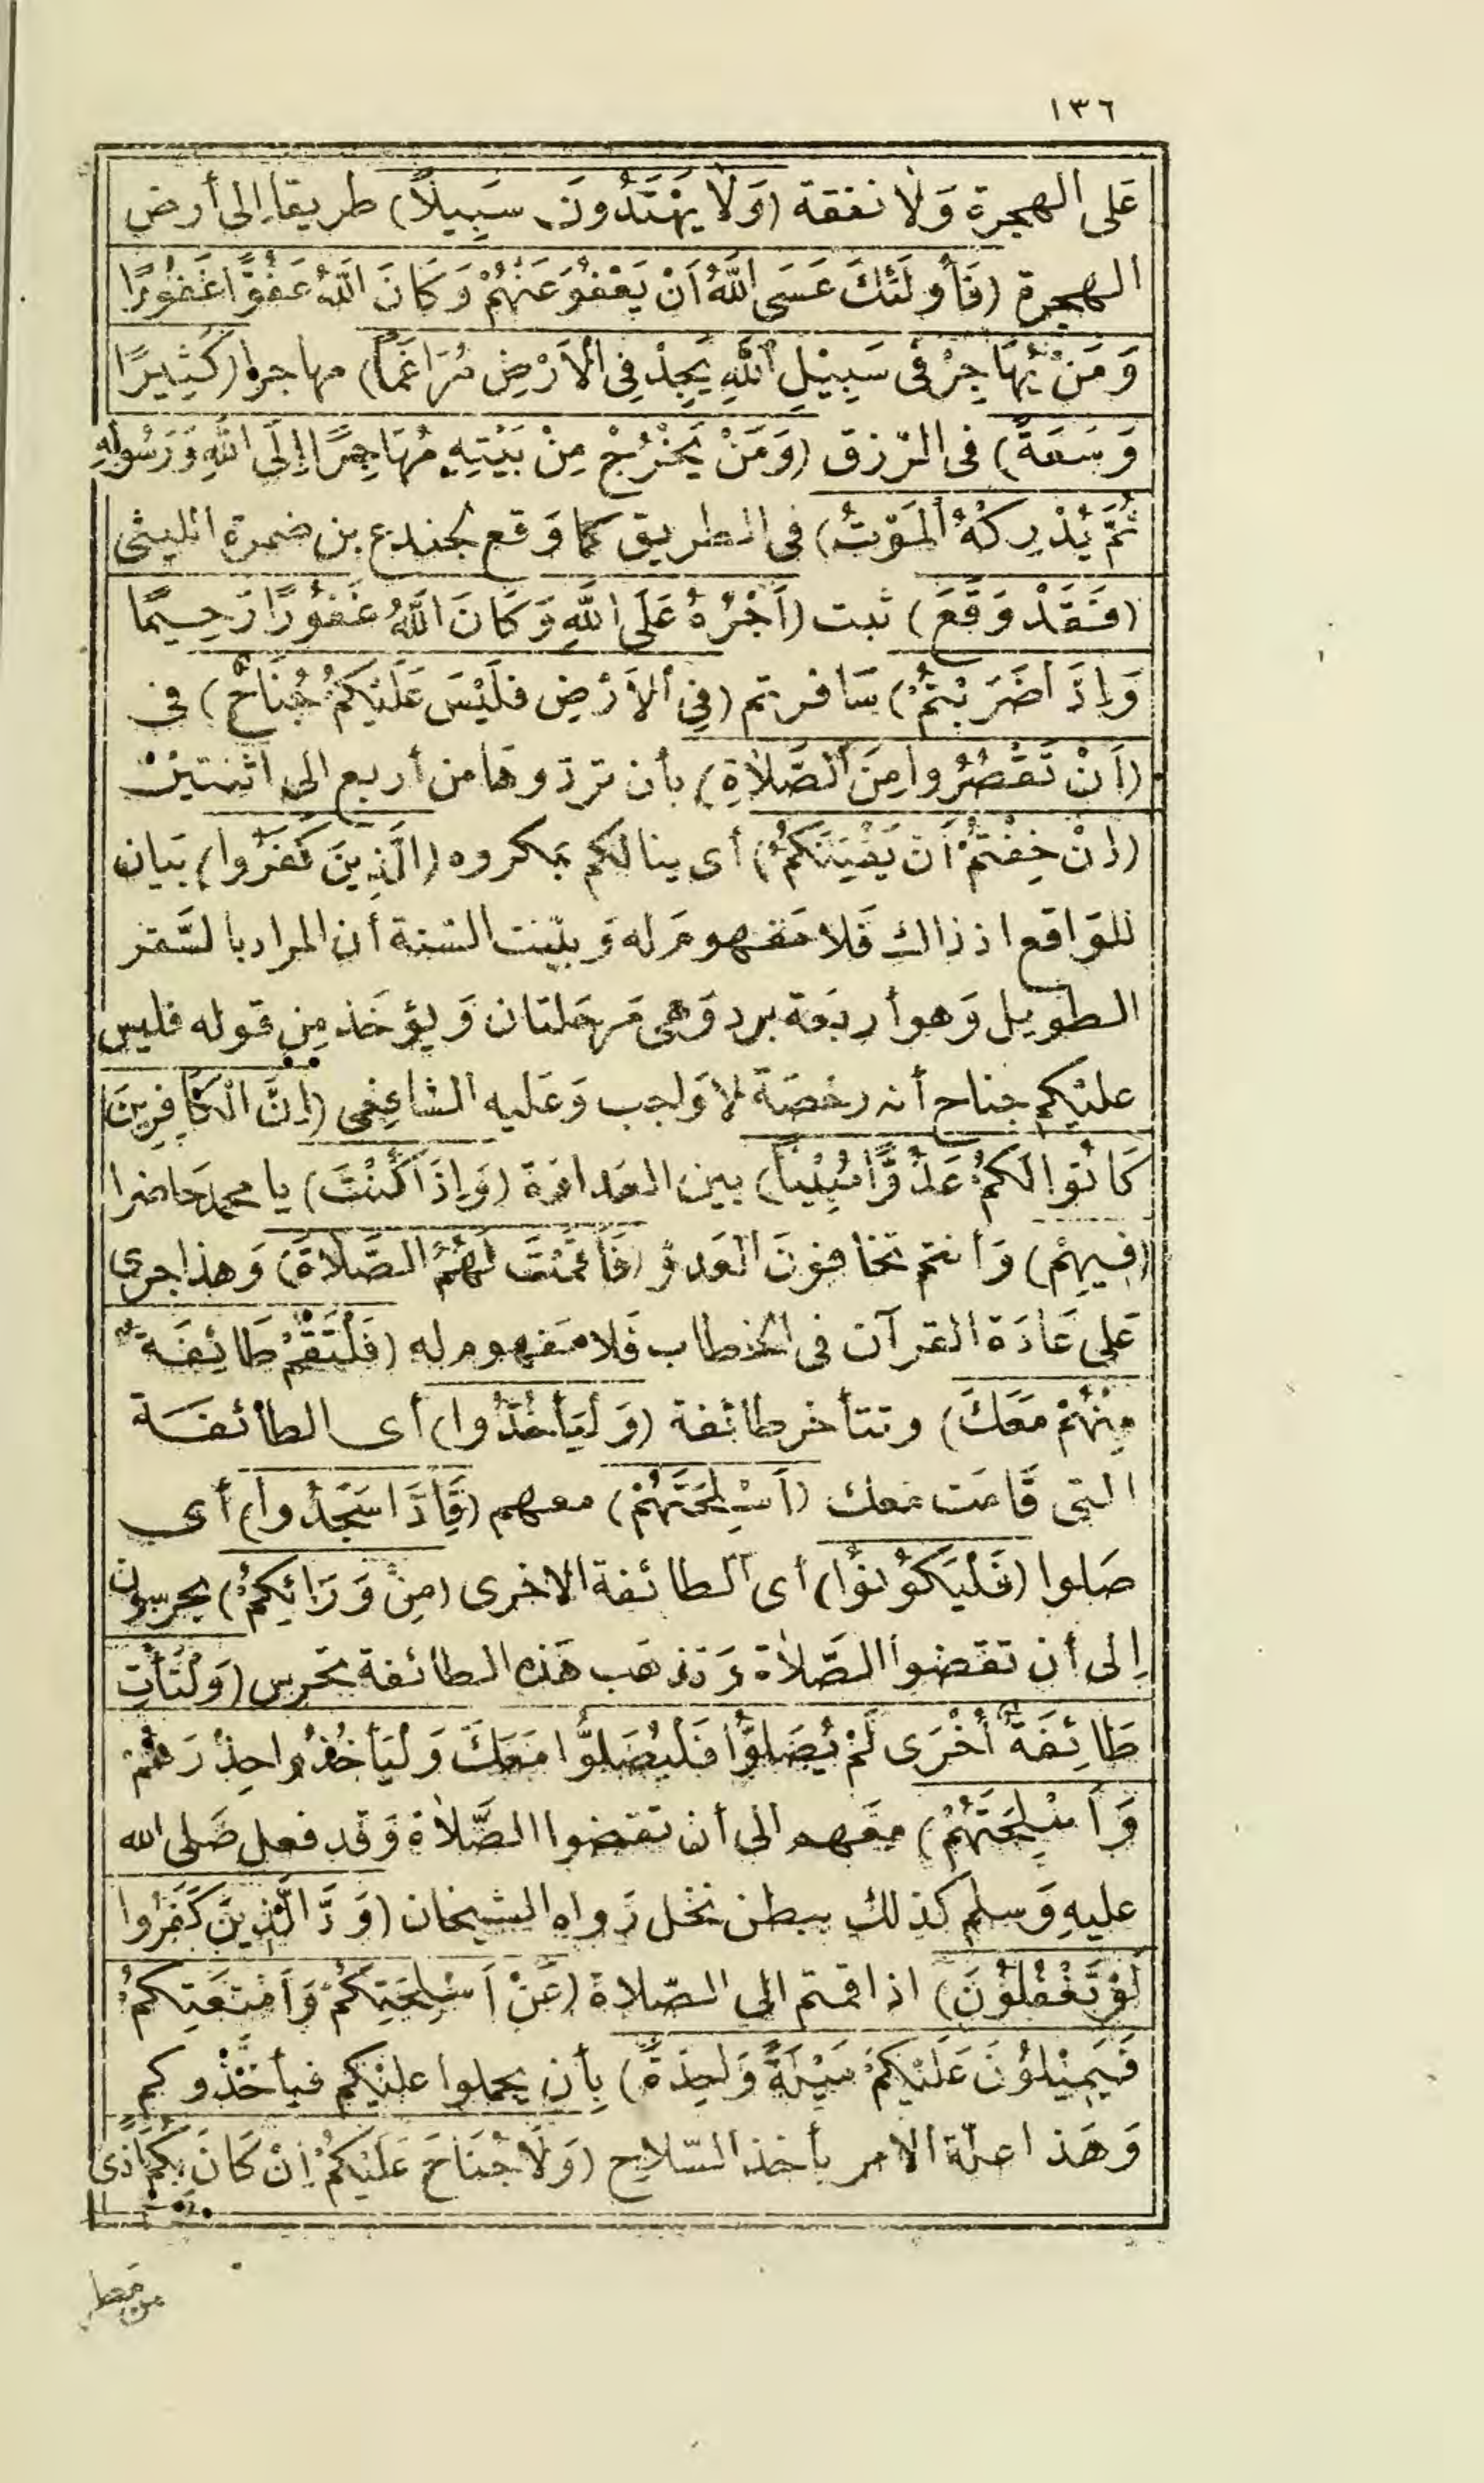 ١٣٦
عَلى الهجرة وَلا نفقة (وَلَا يَهْتَدُونَ سَبِيلًا) طريقا إلى أرض
الهجرة (فَأُولَئِكَ عَسَى اللَّهُ أَنْ يَعْفُوَ عَنْهُمْ وَكَانَ اللَّهُ عَفُوًّا غَفُورًا
وَمَنْ يُهَاجِرْ فِى سَبِيْلِ اللَّهِ يَجِدْ فِى الْأَرْضِ مُرَاغَمًا) مهاجرا (كَثِيرًا
وَسَعَةً) فى الرّزق (وَمَنْ يَخْرُجْ مِنْ بَيْتِهِ مُهَاجِرًا إِلَى اللَّهِ وَرَسُولِهِ
ثُمَّ يُدْرِكْهُ الْمَوْتُ) فى الطريق كما وَقع لجندع بن ضمرة الليثى
(فَقَدْ وَقَعَ) ثبت (أَجْرُهُ عَلَى اللَّهِ وَكَانَ اللَّهُ غَفُورًا رَحِيمًا
وَإِذَا ضَرَبْتُمْ) سَافرتم (فِى الْأَرْضِ فَلَيْسَ عَلَيْكُمْ جُنَاحٌ) فى
(أَنْ تَقْصُرُوا مِنَ الصَّلَاةِ) بأن تردّوهَا من أربع الى اثنتين
(إِنْ خِفْتُمْ أَنْ يَفْتِنَكُمُ) أى ينالكم بمكروه (الَّذِينَ كَفَرُوا) بَيان
للوَاقع اذ ذاك فَلا مَفهومَ له وَبيّنت السّنة أن المراد بالسَّفر
الطويل وَهو أربَعة برد وَهى مَرحَلتان وَيؤخَذ مِن قوله فليس
عليْكم جناح أنه رخصَة لا وَاجب وَعَليه الشافِعى (إِنَّ الْكَافِرِينَ
كَانُوا لَكُمْ عَدُوًّا مُبِيْنًا) بين العَداوَة (وَإِذَا كُنْتَ) يا محمد حَاضرا
(فِيهِمْ) وَأنتم تخافونَ العَدوّ (فَأَقَمْتَ لَهُمُ الصَّلَاةَ) وَهذا جرى
عَلى عَادَة القرآن فى الخطاب فَلا مَفهوم له (فَلْتَقُمْ طَائِفَةٌ
مِنْهُمْ مَعَكَ) وتتأخر طائفة (وَلْيَأْخُذُوا) أى الطائفَة
التى قَامَت مَعك (أَسْلِحَتَهُمْ) معهم (فَإِذَا سَجَدُوا) أى
صَلوا (فَلْيَكُوْنُوا) أى الطائفة الاخرى (مِنْ وَرَائِكُمْ) يحرسون
إلى أن تقضوا الصَّلاة وَتذهَب هَذه الطائفة تحرس (وَلْتَأْتِ
طَائِفَةٌ أُخْرَى لَمْ يُصَلُّوا فَلْيُصَلُّوا مَعَكَ وَلْيَأْخُذُوا حِذْرَهُمْ
وَأَسْلِحَتَهُمْ) معَهم الى أن تقضوا الصَّلاة وَقد فعل صَلى الله
عليهِ وَسلم كذلك ببطن نخل رَواه الشيخان (وَدَّ الَّذِينَ كَفَرُوا
لَوْ تَغْفُلُوْنَ) اذا قمتم الى الصّلاة (عَنْ أَسْلِحَتِكُمْ وَأَمْتِعَتِكُمْ
فَيَمِيْلُوْنَ عَلَيْكُمْ مَيْلَةً وَاحِدَةً) بِأن يحملوا عليْكم فيأخذوكم
وَهَذا علة الأمر بأخذ السّلاح (وَلَا جُنَاحَ عَلَيْكُمْ إِنْ كَانَ بِكُمْ أَذًى
من مطر